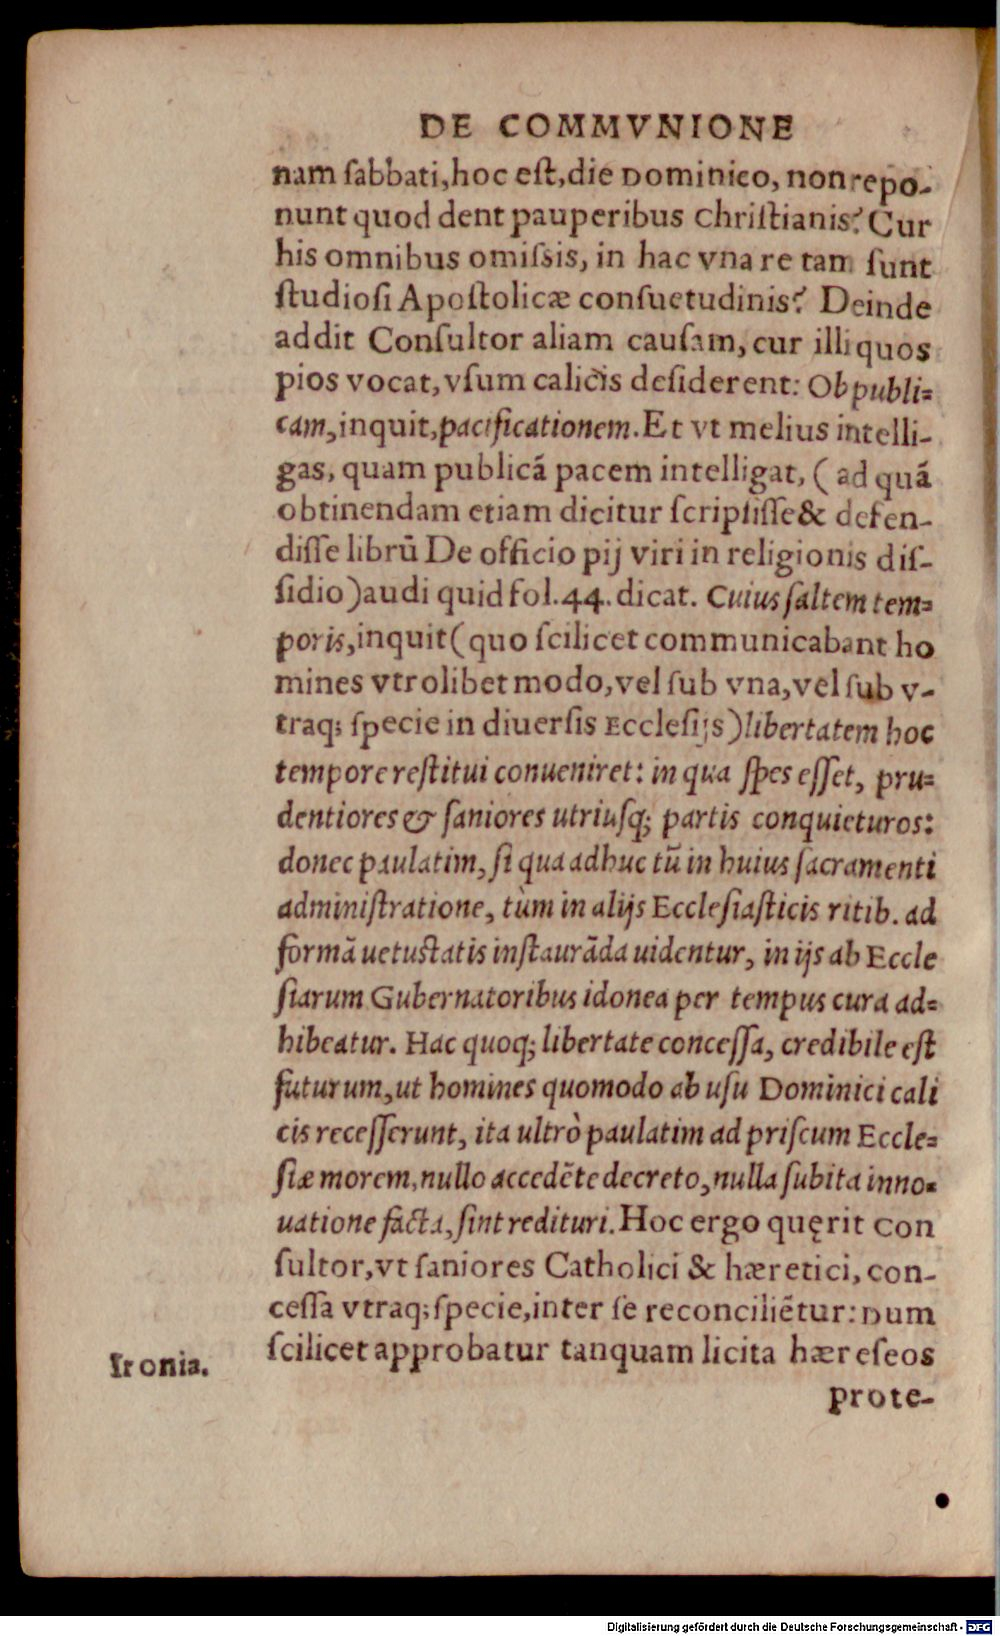 DE COMMVNIONE
nam ſabbati, hoc eſt, die Dominico, non repo-
nunt quod dent pauperibus Chriſtianis? Cur
his omnibus omiſsis, in hac vna re tam ſunt
ſtudioſi Apoſtolicæ conſuetudinis? Deinde
addit Conſultor aliam cauſam, cur illi quos
pios vocat, vſum calicis deſiderent: Ob publi-
cam, inquit, pacificationem. Et vt melius intelli-
gas, quam publicā pacem intelligat, (ad quā
obtinendam etiam dicitur ſcripſiſſe & defen-
diſſe librū De officio pij viri in religionis diſ-
ſidio) audi quid fol. 44. dicat. Cuius ſaltem tem-
poris, inquit (quo ſcilicet communicabant ho
mines vtrolibet modo, vel ſub vna, vel ſub v-
traq; ſpecie in diuerſis Eccleſijs) libertatem hoc
tempore reſtitui conueniret: in qua ſpes eſſet, pru-
dentiores & ſaniores utriuſq; partis conquieturos:
donec paulatim, ſi qua adhuc tū in huius ſacramenti
adminiſtratione, tùm in alijs Eccleſiaſticis ritib. ad
formā uetuſtatis inſtaurāda uidentur, in ijs ab Eccle
ſiarum Gubernatoribus idonea per tempus cura ad-
hibeatur. Hac quoq; libertate conceſſa, credibile eſt
futurum, ut homines quomodo ab uſu Dominici cali
cis receſſerunt, ita ultrò paulatim ad priſcum Eccle-
ſiæ morem, nullo accedēte decreto, nulla ſubita inno-
uatione facta, ſint redituri. Hoc ergo quęrit Con
ſultor, vt ſaniores Catholici & hæretici, con-
ceſſa vtraq; ſpecie, inter ſe reconciliētur: Dum
Ironia.
ſcilicet approbatur tanquam licita hæreſeos
prote-
Digitalisierung gefördert durch die Deutsche Forschungsgemeinschaft - DFG